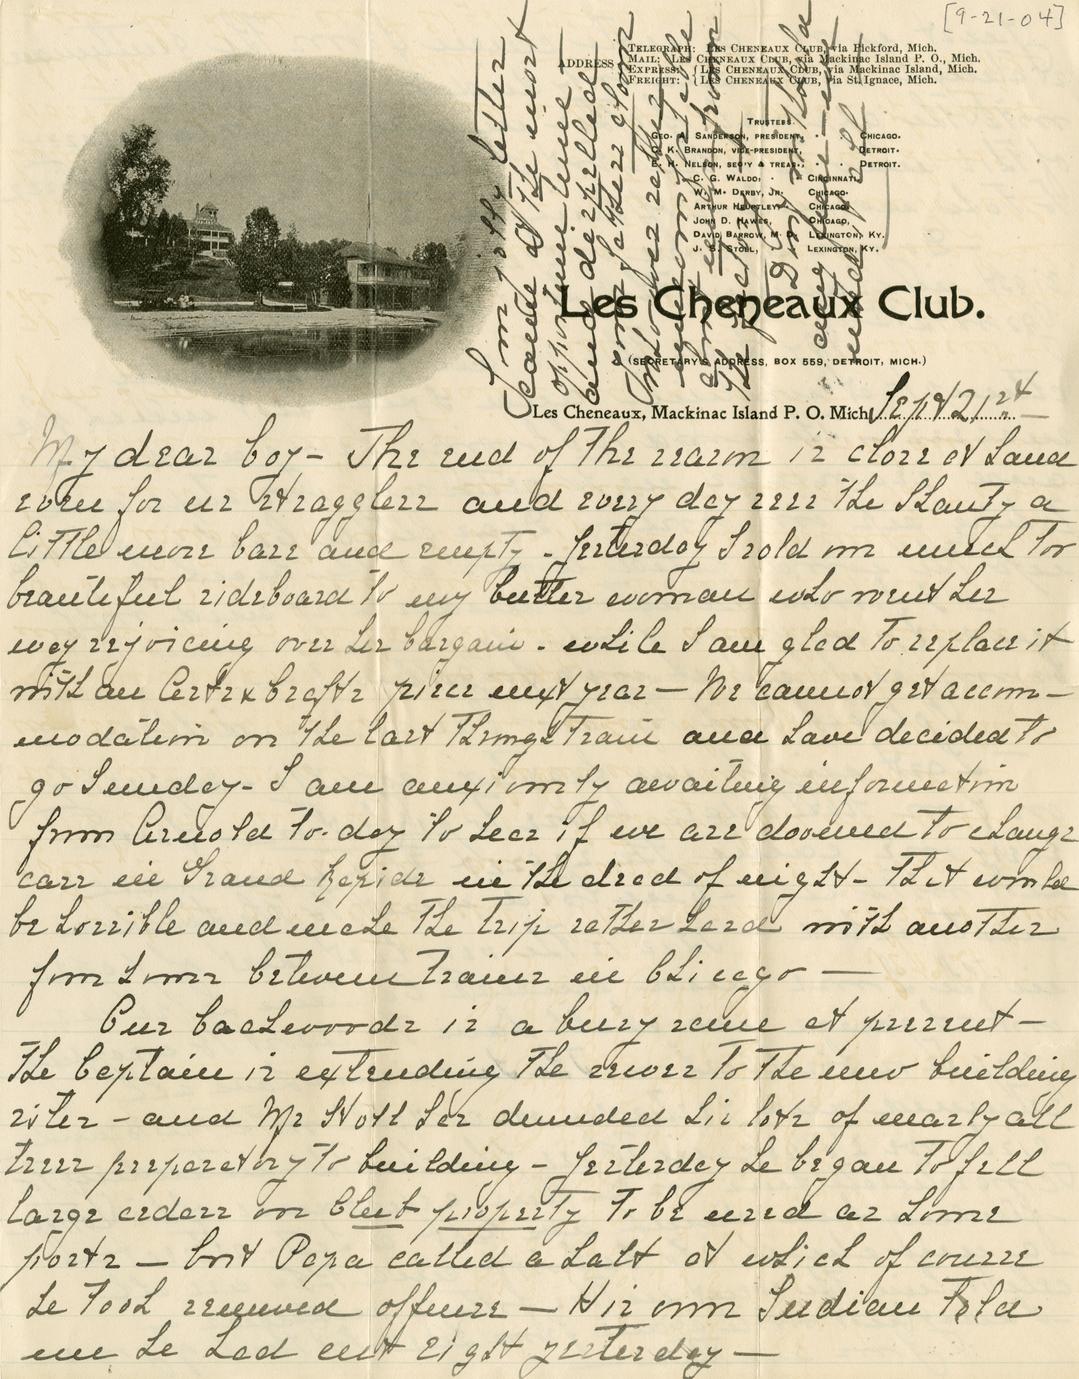 [9-21-04]
ADDRESS
TELEGRAPH: LES CHENEAUX CLUB, via Pickford, Mich.
MAIL: LES CHENEAUX CLUB, via Mackinac Island P. O., Mich.
EXPRESS: { LES CHENEAUX CLUB, via Mackinac Island, Mich.
FREIGHT: { LES CHENEAUX CLUB, via St. Ignace, Mich.
TRUSTEES.
GEO. A. SANDERSON, PRESIDENT, CHICAGO.
O. K. BRANDON, VICE-PRESIDENT, DETROIT.
E. H. NELSON, SEC'Y & TREAS., DETROIT.
C. G. WALDO, CINCINNATI.
W. M. DERBY, JR. CHICAGO.
ARTHUR HEURTLEY CHICAGO.
JOHN D. HAWES, CHICAGO,
DAVID BARROW, M. D. LEXINGTON, KY.
J. S. STOLL, LEXINGTON, KY.
Les Cheneaux Club.
(SECRETARY'S ADDRESS, BOX 559, DETROIT, MICH.)
Les Cheneaux, Mackinac Island P. O. Mich. Sept 21st
My dear boy - The end of the season is close at hand
even for us stragglers and every day sees the Shanty a
little more bare and empty - Yesterday I sold our much too
beautiful sideboard to my butter woman who went her
way rejoicing over her bargain - while I am glad to replace it
with an Arts & Crafts piece next year - We cannot get accom-
modation on the last through train and have decided to
go Sunday - I am anxiously awaiting information
from Arnold to-day to hear if we are doomed to change
cars in Grand Rapids in the dead of night - that would
be horrible and make the trip rather hard with another
four hours between trains in Chicago —
Our backwoods is a busy scene at present -
The Captain is extending the sewer to the new building
sites - and Mr Nott has denuded his lots of nearly all
trees preparatory to building - Yesterday he began to fell
large cedars on Club property to be used as house
posts - but Papa called a halt at which of course
he took renewed offense - His own Indian told
me he had cut eight yesterday —
Your jolly letter
came at the most
opportune time
and dispelled
some